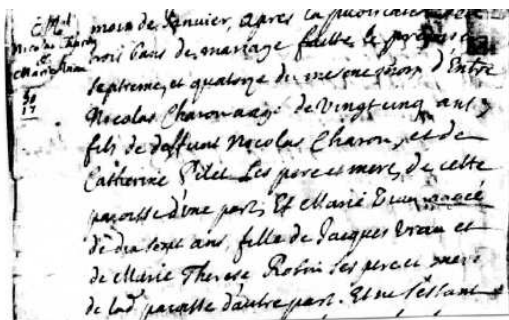 C. M.
Nicolas Charon
et
Marie Anne
30
17
mois de Janvier, apres la publication de
trois bans de mariage faitte le premier
septieme, et quatorze du mesme mois d'Entre
Nicolas Charon aagé de vingt cinq ans
fils de deffunt Nicolas Charon, et de
Catherine Pilet Les pere et mere, de cette
paroisse d'une part, Et Marie Vran aagée
de dix sept ans, fille de Jacques Vran et
de Marie Therese Robin ses pere et mere
de lad. paroisse d'autre part. Et ne s'estant